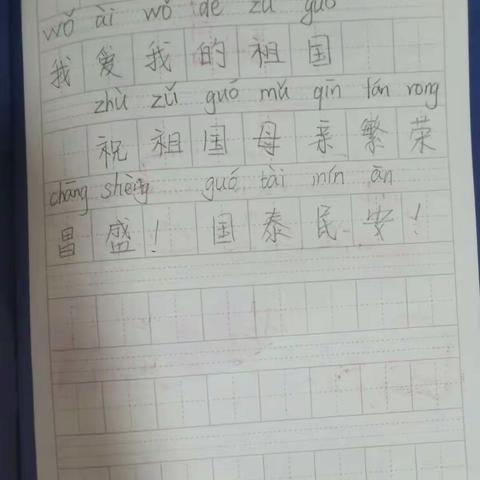 wǒ ài wǒ de zǔ guó
我爱我的祖国
zhù zǔ guó mǔ qīn fán rong
祝祖国母亲繁荣
chāng shèng guó tài mín ān
昌盛！国泰民安！